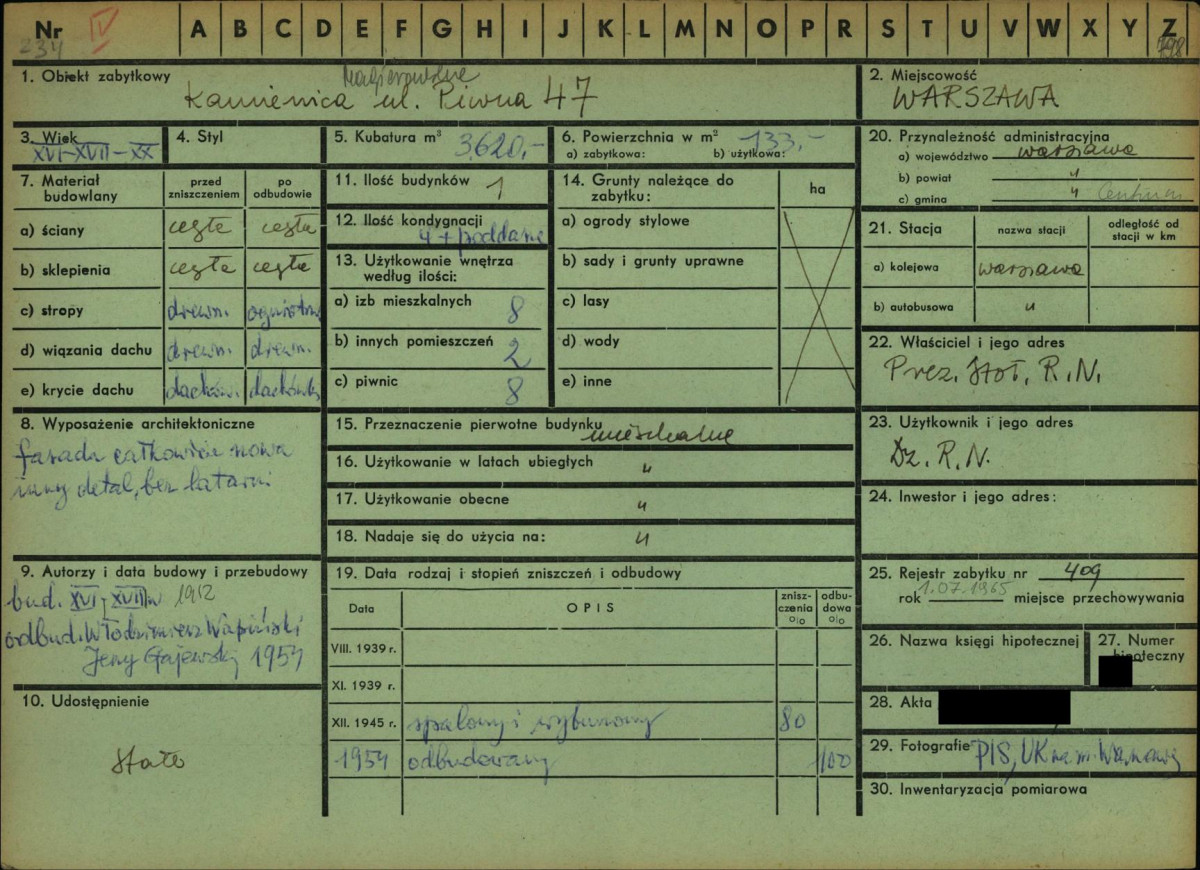 Nr IV A B C D E F G H I J K L M N O P R S T U V W X Y Z
234 798
1. Obiekt zabytkowy
Kamienica ul. Piwna 47
2. Miejscowość
WARSZAWA
3. Wiek
XVI-XVII-XX
4. Styl
5. Kubatura m³ 3620,-
6. Powierzchnia w m² 133,-
a) zabytkowa: b) użytkowa:
20. Przynależność administracyjna
a) województwo warszawa
b) powiat "
c) gmina " Centrum
7. Materiał budowlany
przed zniszczeniem
po odbudowie
a) ściany cegła cegła
b) sklepienia cegła cegła
c) stropy drewn. ogniotrw
d) wiązania dachu drewn. drewn.
e) krycie dachu dachów. dachówk
11. Ilość budynków 1
12. Ilość kondygnacji
4 + poddasze
13. Użytkowanie wnętrza
według ilości:
a) izb mieszkalnych 8
b) innych pomieszczeń 2
c) piwnic 8
14. Grunty należące do
zabytku:
ha
a) ogrody stylowe
b) sady i grunty uprawne
c) lasy
d) wody
e) inne
21. Stacja
nazwa stacji
odległość od
stacji w km
a) kolejowa warszawa
b) autobusowa "
22. Właściciel i jego adres
Prez. Stoł. R.N.
8. Wyposażenie architektoniczne
fasada całkowicie nowa
inny detal, bez latarni
15. Przeznaczenie pierwotne budynku mieszkalne
16. Użytkowanie w latach ubiegłych "
17. Użytkowanie obecne "
18. Nadaje się do użycia na: "
23. Użytkownik i jego adres
Dz. R.N.
24. Inwestor i jego adres:
9. Autorzy i data budowy i przebudowy
bud. XVI-XVII w 1912
odbud. Włodzimierz Wapiński
Jerzy Gajewski 1954
10. Udostępnienie
stałe
19. Data rodzaj i stopień zniszczeń i odbudowy
Data
OPIS
znisz-
czenia
%
odbu-
dowa
%
VIII. 1939 r.
XI. 1939 r.
XII. 1945 r. spalony i wyburzony 80
1954 odbudowany 100
25. Rejestr zabytku nr 409
rok 1.07.1965 miejsce przechowywania
26. Nazwa księgi hipotecznej
27. Numer
hipoteczny
28. Akta
29. Fotografie PIS, UK na m. Warszawę
30. Inwentaryzacja pomiarowa